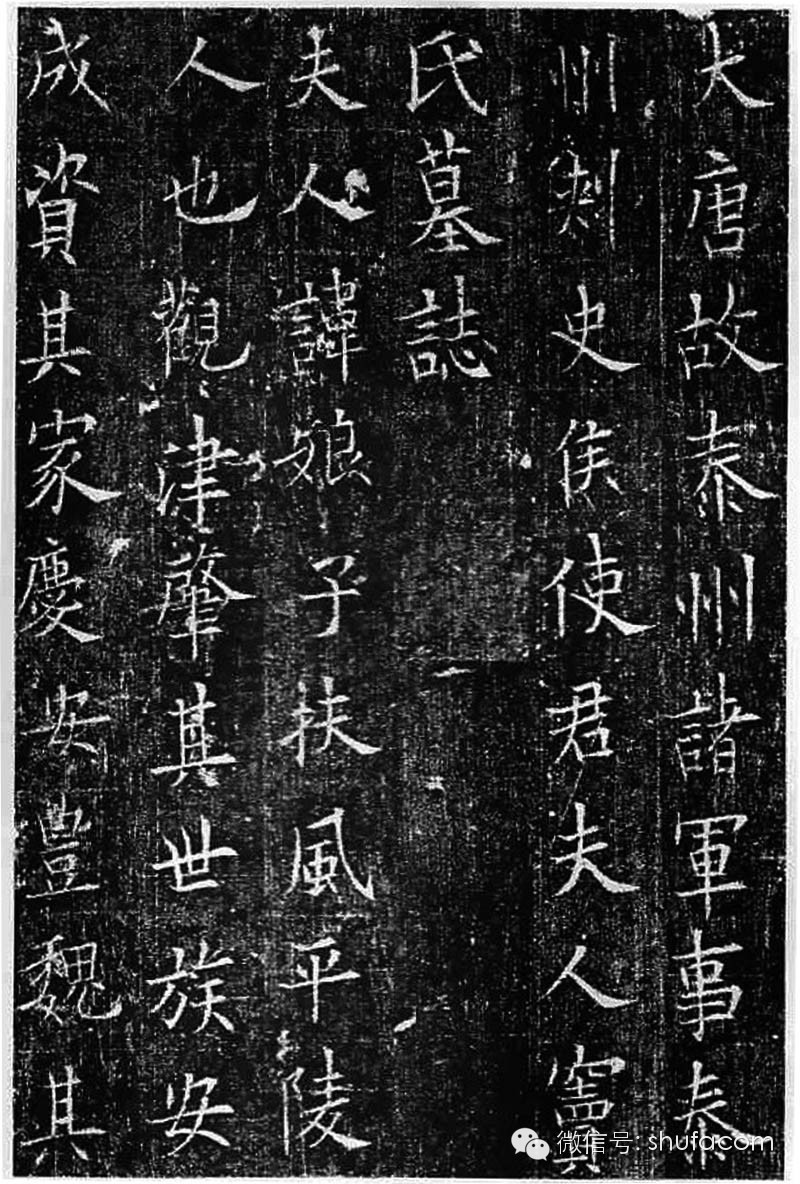 大唐故泰州諸軍事泰
州刺史侯使君夫人竇
氏墓誌
夫人諱娘子扶風平陵
人也觀津肇其世族安
成資其家慶安豊魏其
微信号: shufacom